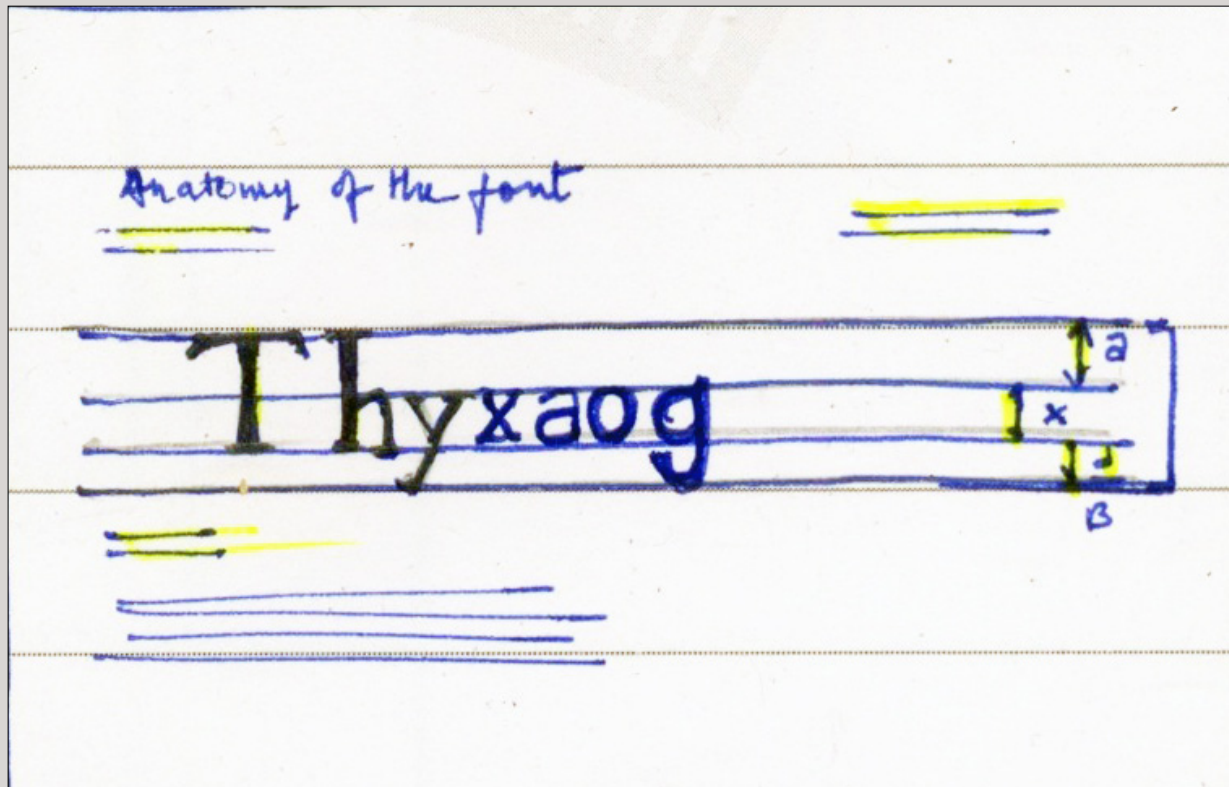 Anatomy of the font
Thyxaog
a
x
B